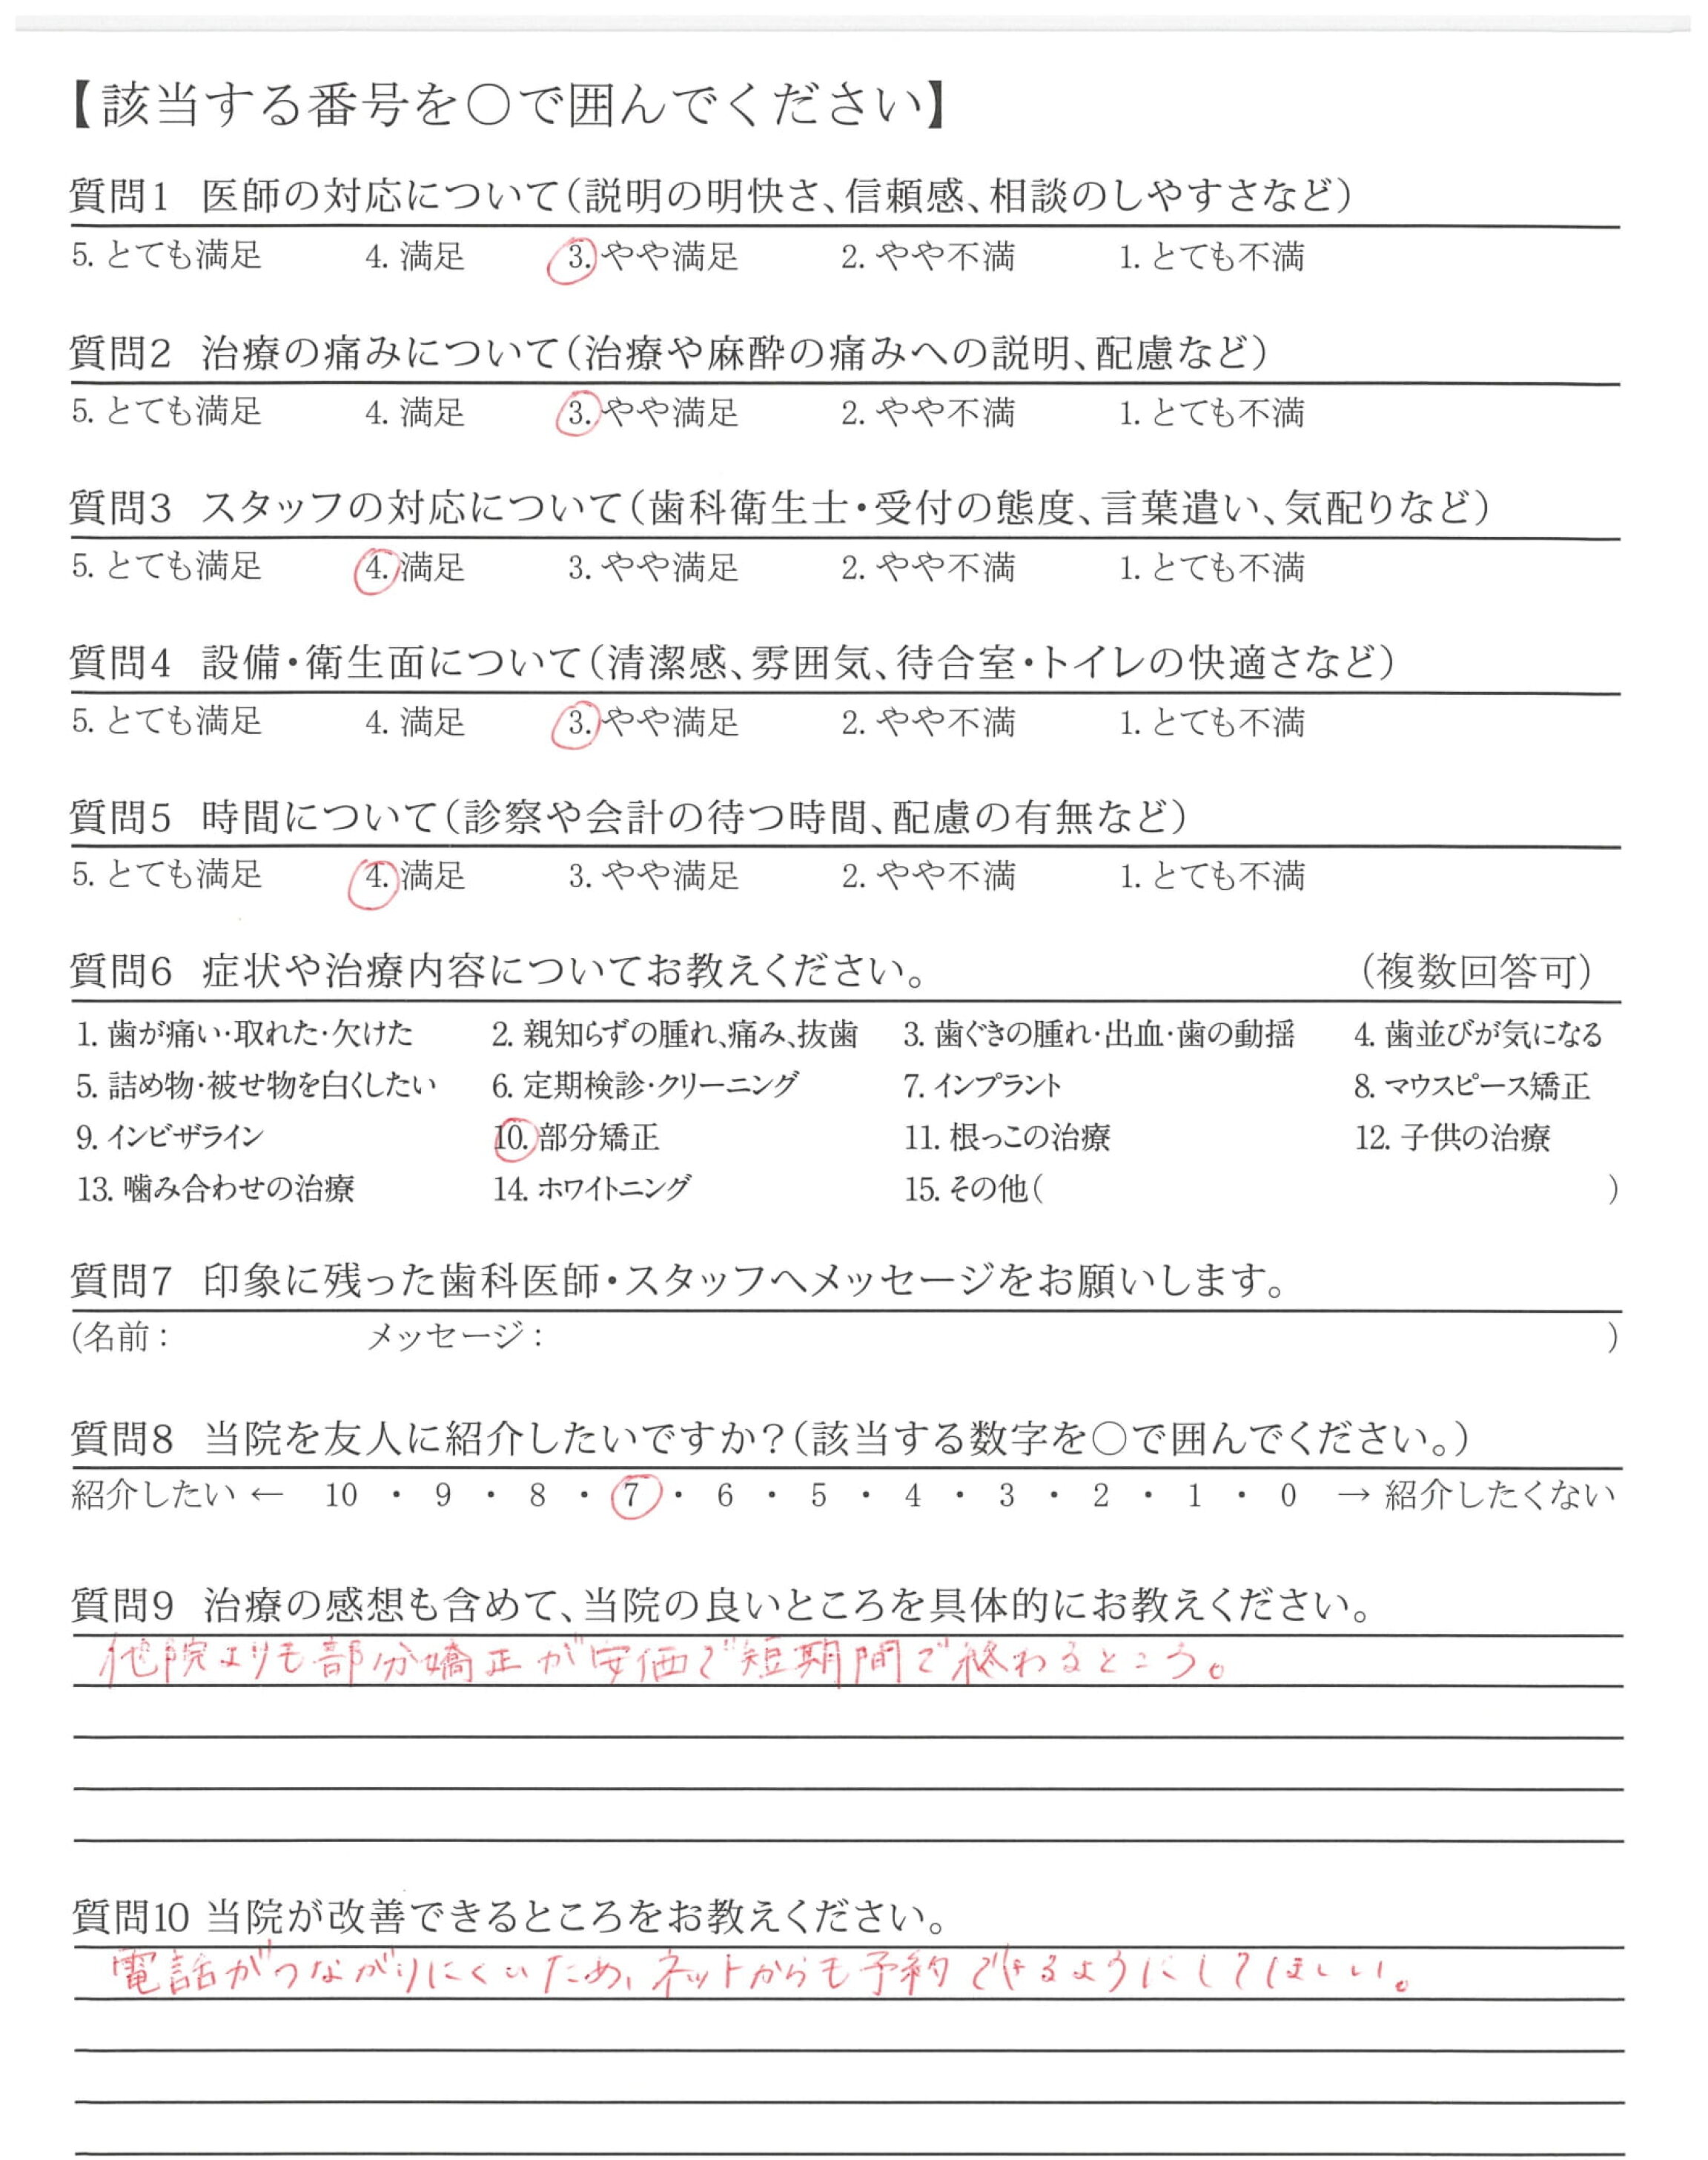 【該当する番号を〇で囲んでください】
質問1 医師の対応について(説明の明快さ、信頼感、相談のしやすさなど)
5. とても満足 4. 満足 3. やや満足 2. やや不満 1. とても不満
質問2 治療の痛みについて(治療や麻酔の痛みへの説明、配慮など)
5. とても満足 4. 満足 3. やや満足 2. やや不満 1. とても不満
質問3 スタッフの対応について(歯科衛生士・受付の態度、言葉遣い、気配りなど)
5. とても満足 4. 満足 3. やや満足 2. やや不満 1. とても不満
質問4 設備・衛生面について(清潔感、雰囲気、待合室・トイレの快適さなど)
5. とても満足 4. 満足 3. やや満足 2. やや不満 1. とても不満
質問5 時間について(診察や会計の待つ時間、配慮の有無など)
5. とても満足 4. 満足 3. やや満足 2. やや不満 1. とても不満
質問6 症状や治療内容についてお教えください。 (複数回答可)
1. 歯が痛い・取れた・欠けた 2. 親知らずの腫れ、痛み、抜歯 3. 歯ぐきの腫れ・出血・歯の動揺 4. 歯並びが気になる
5. 詰め物・被せ物を白くしたい 6. 定期検診・クリーニング 7. インプラント 8. マウスピース矯正
9. インビザライン 10. 部分矯正 11. 根っこの治療 12. 子供の治療
13. 噛み合わせの治療 14. ホワイトニング 15. その他( )
質問7 印象に残った歯科医師・スタッフへメッセージをお願いします。
(名前: メッセージ: )
質問8 当院を友人に紹介したいですか?(該当する数字を〇で囲んでください。)
紹介したい ← 10 ・ 9 ・ 8 ・ 7 ・ 6 ・ 5 ・ 4 ・ 3 ・ 2 ・ 1 ・ 0 → 紹介したくない
質問9 治療の感想も含めて、当院の良いところを具体的にお教えください。
他院よりも部分矯正が安価で短期間で終わるところ。
質問10 当院が改善できるところをお教えください。
電話がつながりにくいため、ネットからも予約できるようにしてほしい。